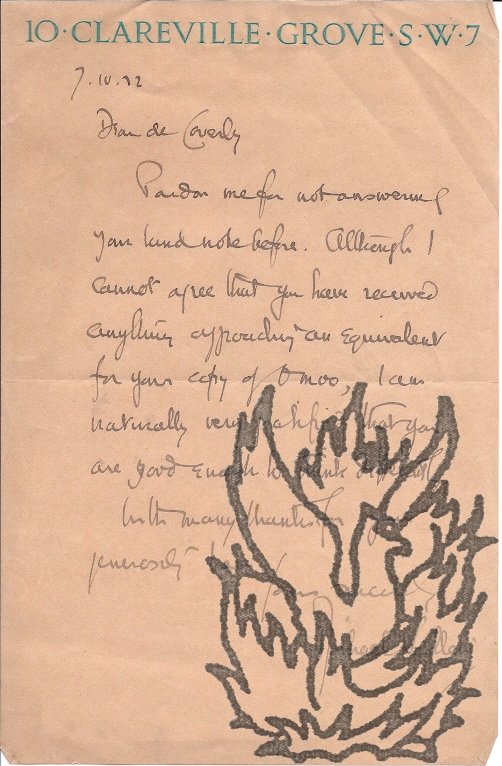 10·CLAREVILLE·GROVE·S·W·7
7.IV.32
Dear de Coverly
Pardon me for not answering
your kind note before. Although I
cannot agree that you have received
anything approaching an equivalent
for your copy of Omoo, I am
naturally very gratified that you
are good enough to think
With many thanks for
generosity
Yours sincerely
Michael